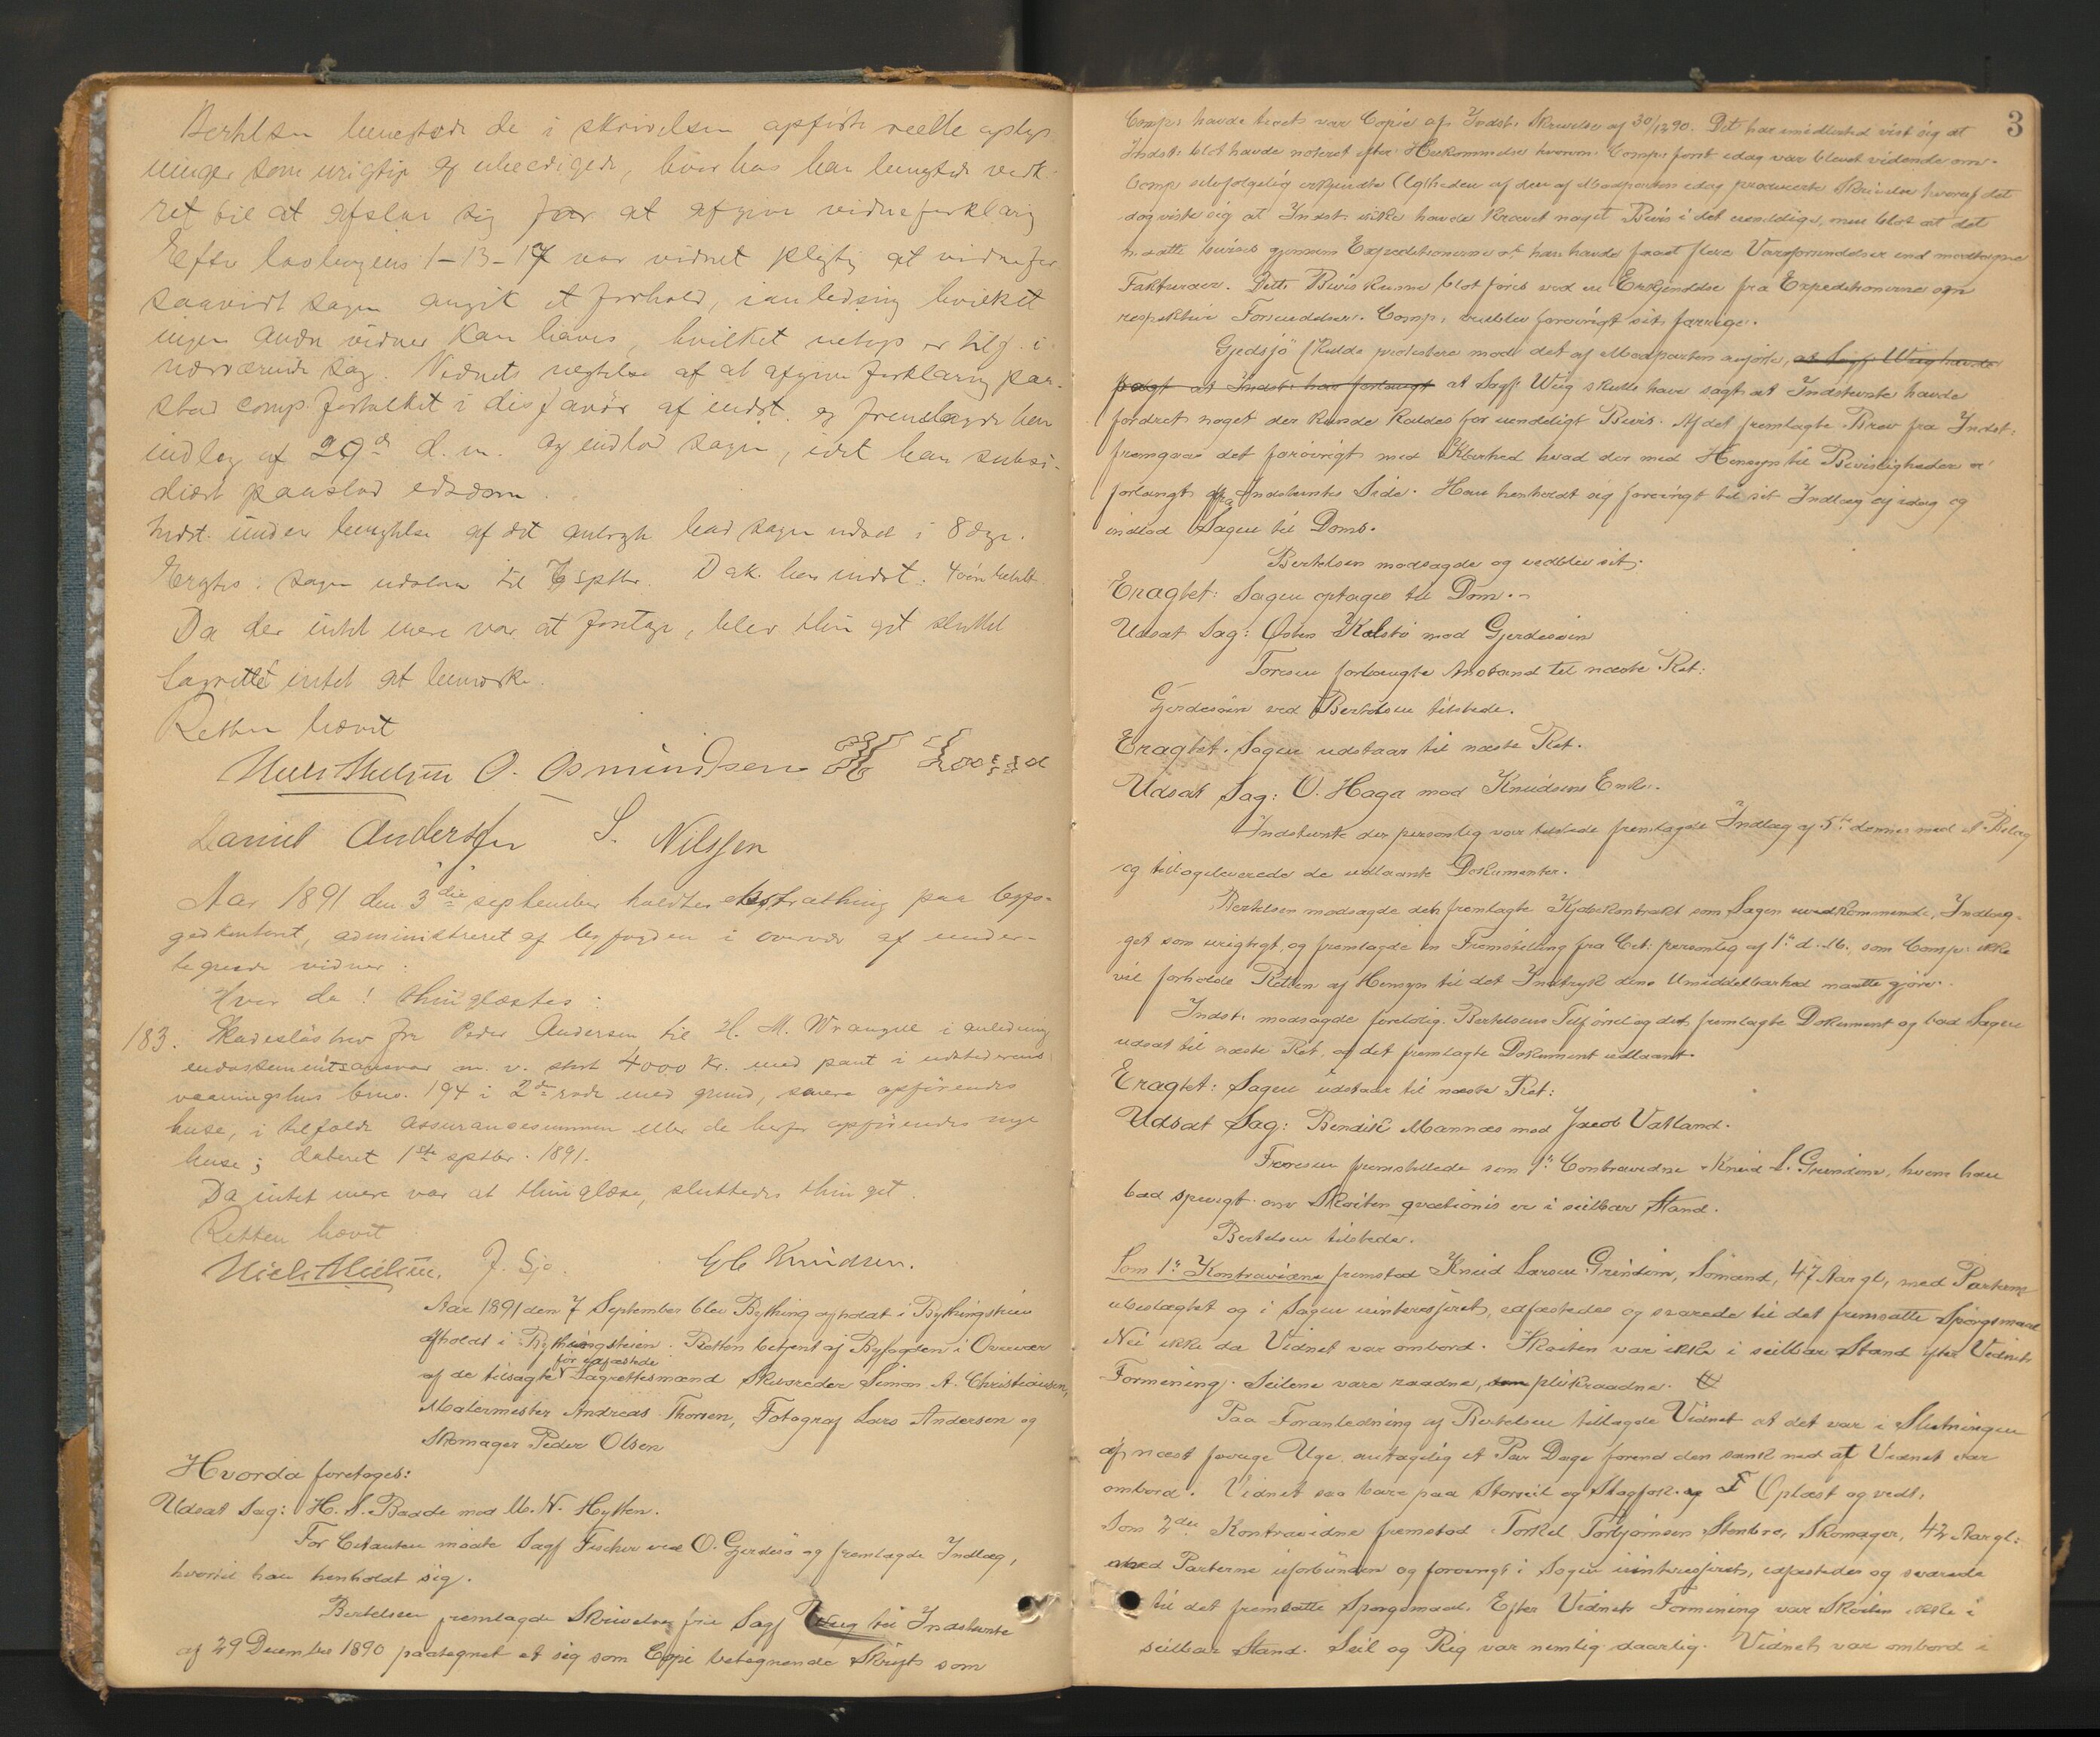 Bertelsen benegtede de i skrivelsen opførte reelle oplys-
ninger som urigtige og ubeedigede, hvorhos han benegtede vedk.
ret til at afslaa sig for at afgive vidneforklaring
Efter lovbogens 1-13-17 var vidnet pligtig at vidne for
saavidt sagen angik et forhold, i anledning hvilket
ingen andre vidner kan haves, hvilket netop er tilf. i
nærværende sag. Vidnets negtelse af at afgive forklaring paa-
stod comp. fortolket i disfavør af indst. og fremlagde han
indlæg af 29de d. m. og indlod sagen, idet han subsi-
diært paastod edsdom.
Indst. under benegtelse af det anbragte bad sagen udsat i 8 dage.
Eragtes: sagen udstaar til 7 septbr. D ak. har indst.
Da der intet mere var at foretage, blev thinget sluttet
Lagrettet intet at bemærke.
Retten hævet
Niels Nielsen O. Osmundsen
Daniel Andersen S. Nilssen
Aar 1891 den 3die september holdtes extrathing paa byfo-
gedkontoret, administreret af byfogden i overvær af under-
tegnede vidner:
Hvor da! thinglæstes:
183. Skadesløsbrev fra Peder Andersen til H. M. Wrangell i anledning
endossementsansvar m. v. stort 4000 kr. med pant i udstederens
vaaningshus brno. 194 i 2de rode med grund, senere opførendes
huse, i tilfælde assurancesummen eller de herfor opførendes nye
huse; dateret 1ste septbr. 1891.
Da intet mere var at thinglæse, sluttedes thinget.
Retten hævet
Niels Nielsen. J. Sjo. Knudsen.
Aar 1891 den 7 September blev Bything afholdt i Bythingstuen
afholdt i Bythingstuen. Retten betjent af Byfogden i Overvær
før edfæstede
af de tilsagte Lagrettesmænd Skrædder Simon A. Christiansen,
Malermester Andreas Thorsen, Fotograf Lars Andersen og
Skomager Peder Olsen
Hvorda foretoges:
Udsat Sag: H. S. Baade mod M. N. Hytten.
For Citanten mødte Sagf Fischer ved O. Gjerdesø og fremlagde Indlæg,
hvortil han henholdt sig.
Bertelsen fremlagde Skrivelse fra Sagf Wiig til Indstevnte
af 29 December 1890 paategnet et sig som Copi betegnende Skrift som
3
Comp: havde bevist var Copie af Indst: Skrivelse af 30/12 90. Det har imidlertid vist sig at
Indst: blot havde noteret efter Hukommelse hvorom Comp: først idag var blevet vidende om.
Comp selvfølgelig erkjendte Ægtheden af den af Modparten idag producerte Skrivelse hvoraf det
dog viste sig at Indst. ikke havde krævet noget Bevis i det uendelige, men blot at det
maatte bevises gjennem Expeditionerne at han havde faaet flere Vareforsendelser end modtagne
Fakturaer. Dette Bevis kunne blot føres ved en Erkjendelse fra Expeditionerne om
respektive Forsendelser. Comp. vedblev forøvrigt sit forrige.
Gjedsjö skulde protestere mod det af Modparten anførte, at Sagf: Wiig havde
sagt at Indst: har forlangt at Sagf: Wiig skulde have sagt at Indstevnte havde
fordret noget der kunde kaldes for uendeligt Bevis. Af det fremlagte Brev fra Indst:
fremgaar det forøvrigt med Klarhed hvad der med Hensyn til Bevisligheder er
forlangt fra Indstevntes Side. Han henholdt sig forøvrigt til sit Indlæg af idag og
indlod Sagen til Doms.
Bertelsen modsagde og vedblev sit.
Eragtet: Sagen optages til Dom.
Udsat Sag: Østen Kalstø mod Gjerdesøen
Foresen forlangte Anstand til næste Ret:
Gjerdesøen ved Bertelsen tilstede.
Eragtet. Sagen udstaar til næste Ret.
Udsat Sag: O. Haga mod Knudsens Enke.
Indstevnte der personlig var tilstede fremlagde Indlæg af 5te dennes med 1 Bilag
og tilbageleverede de udlaante Dokumenter.
Bertelsen modsagde den fremlagte Kjøbekontrakt som Sagen uvedkommende, Indlæg-
get som urigtigt, og fremlagde en Fremstilling fra Cit: personlig af 1ste d. M. som Comp: ikke
vil forholde Retten af Hensyn til det Indtryk dens Umiddelbarhed maatte gjøre.
Indst: modsagde foreløbig Bertelsens Tilførsel og det fremlagte Dokument og bad Sagen
udsat til næste Ret, og det fremlagte Dokument udlaant.
Eragtet: Sagen udstaar til næste Ret:
Udsat Sag: Bendik Mannæs mod Jacob Valland.
Foresen fremstillede som 1ste Contravidne Knud L. Grindem, hvem han
bad spurgt om Skøiten qvæstionis er i seilbar Stand.
Bertelsen tilstede.
Som 1ste Kontravidne fremstod Knud Larsen Grindem, Sømand, 47 Aar gl, med Parterne
ubeslægtet og i Sagen uinteresseret, edfæstedes og svarede til det fremsatte Spørgsmaal
Nei ikke da Vidnet var ombord. Skøiten var ikke i seilbar Stand efter Vidnets
Formening. Seilene vare raadne, som plukraadne.
Paa Foranledning af Bertelsen tillagde Vidnet at det var i Slutningen
af næst forrige Uge, antagelig et Par Dage forend den sank ned at Vidnet var
ombord. Vidnet saa bare paa Storseil og Stagfok. Oplæst og vedt.
Som 2det Kontravidne fremstod Torkel Torbjørnsen Stenbro, Skomager, 42 Aar gl:
med Parterne uforbunden og forøvrigt i Sagen uinteresseret, edfæstedes og svarede
til det fremsatte Spørgsmaal: Efter Vidnets Formening var Skøiten ikke i
seilbar Stand. Seil og Rig var nemlig daarlig. Vidnet var ombord i